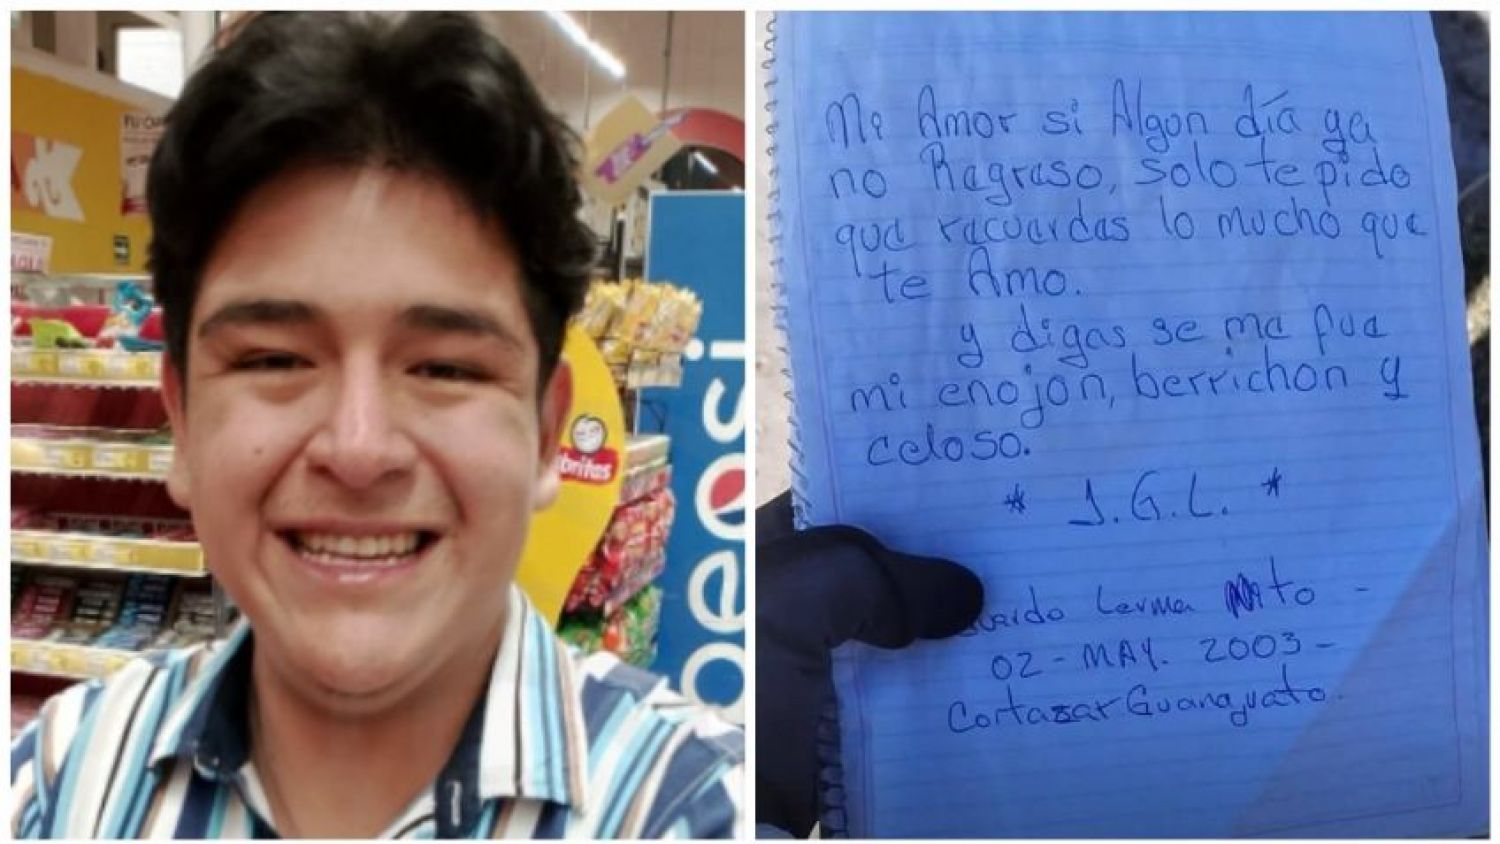 Mi Amor si Algun día ya
no Regreso, solo te pido
que recuerdes lo mucho que
te Amo.
y digas se me fue
mi enojon, berrichon y
celoso.
* J.G.L. *
Lerma
02 - MAY. 2003 -
Cortazar Guanajuato.
pepsi